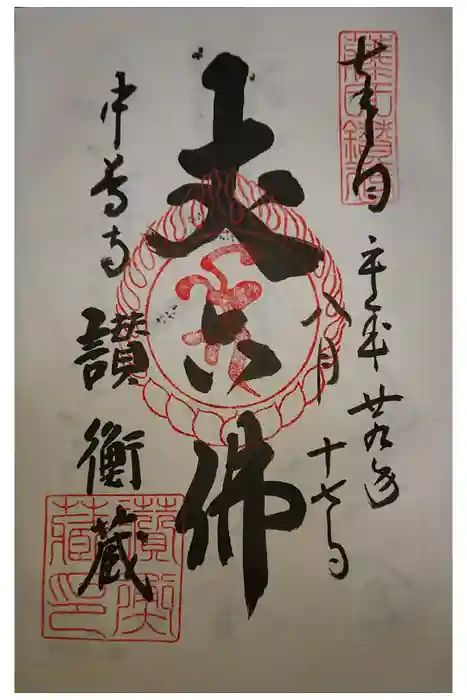 奉拝
平成廿九年
八月
十七日
丈六佛
中尊寺
讃衡蔵
讃衡
蔵印